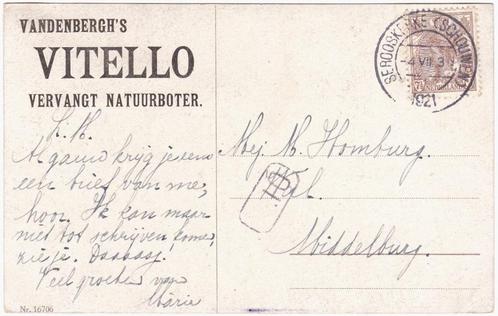 VANDENBERGH'S
VITELLO
VERVANGT NATUURBOTER.
SEROOSKERKE (SCHOUWEN)
-4 VII 3
1921
7½
NEDERLAND
L. M.
Al gauw krijg je eens
een brief van me,
hoor. Ik kan maar
niet tot schrijven kome,
zie je. Daaaag!
Veel groeten van
Marie
Mej. M. Homburg.
Middelburg.
Nr. 16706